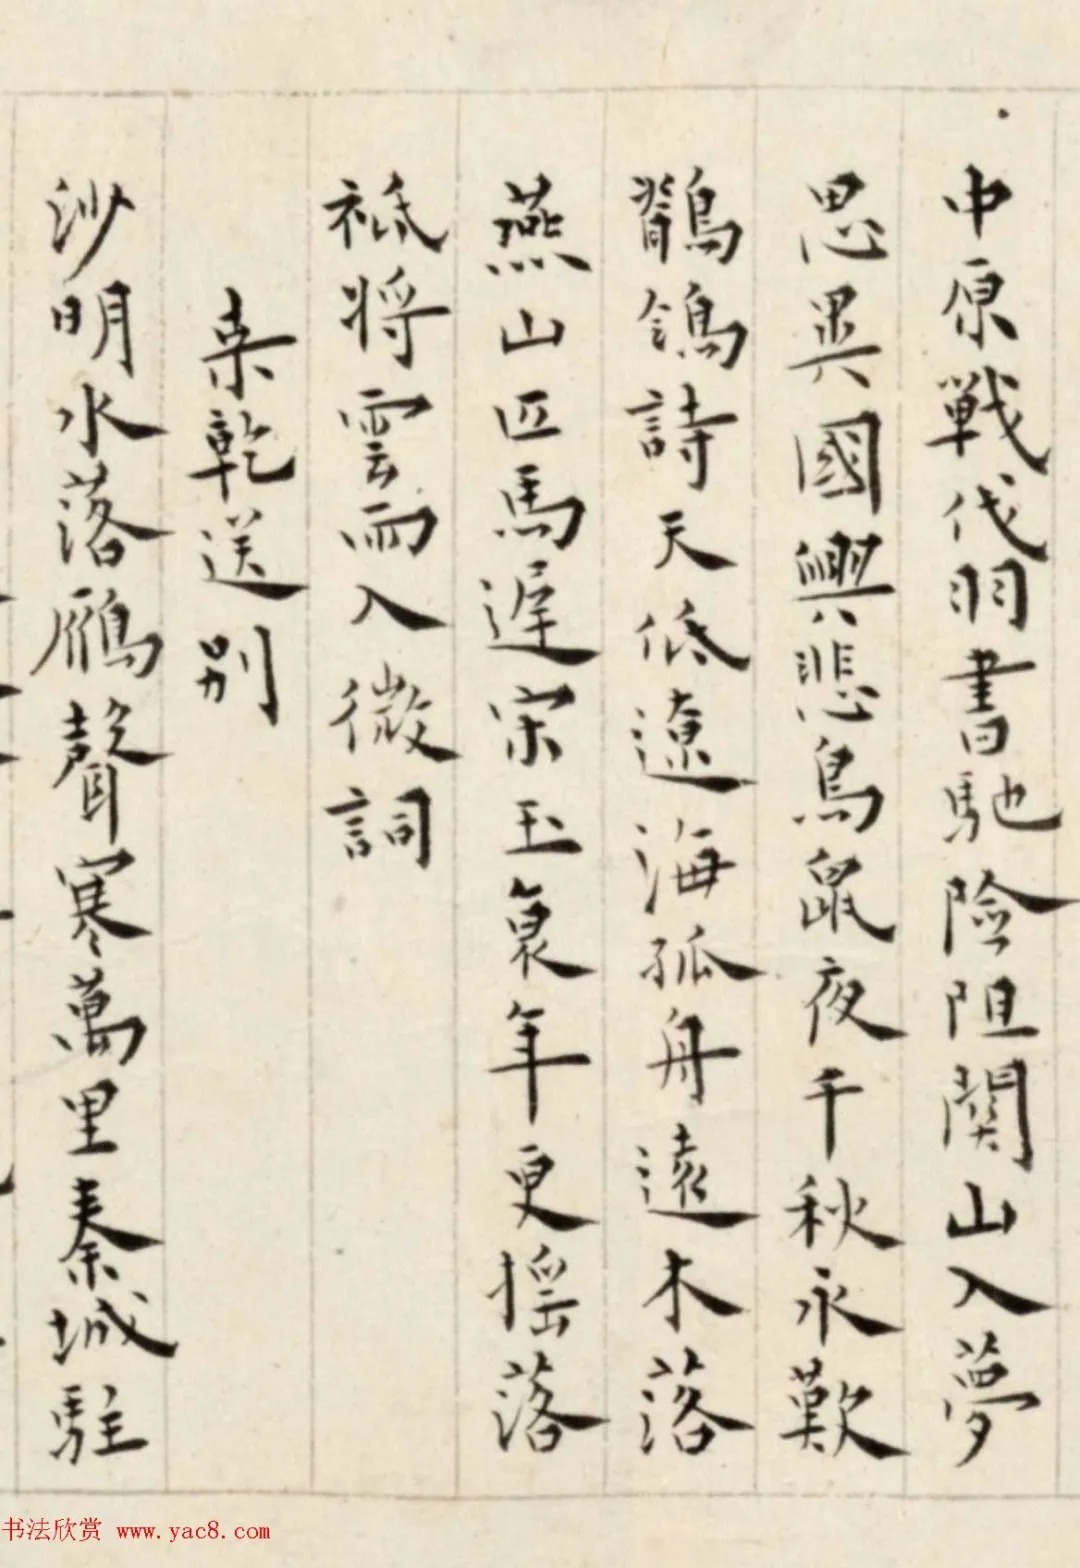 中原戰伐羽書馳險阻關山入夢
思異國興悲鳥鼠夜千秋永歎
鶺鴒詩天低遼海孤舟遠木落
燕山匹馬遲宋玉衰年更搖落
祗將雲雨入微詞
桑乾送别
沙明水落鴈聲寒萬里秦城駐
书法欣赏 www.yac8.com